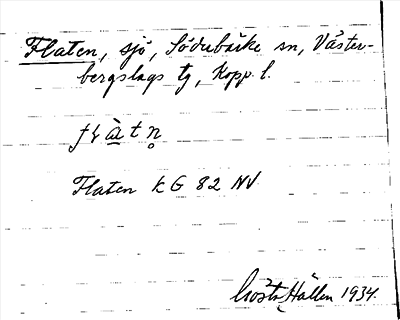 Flaten, sjö, Söderbärke sn, Väster-
bergslags tg, Kopp. l.
Flaten k G 82 NV
Gösta Hallén 1934.